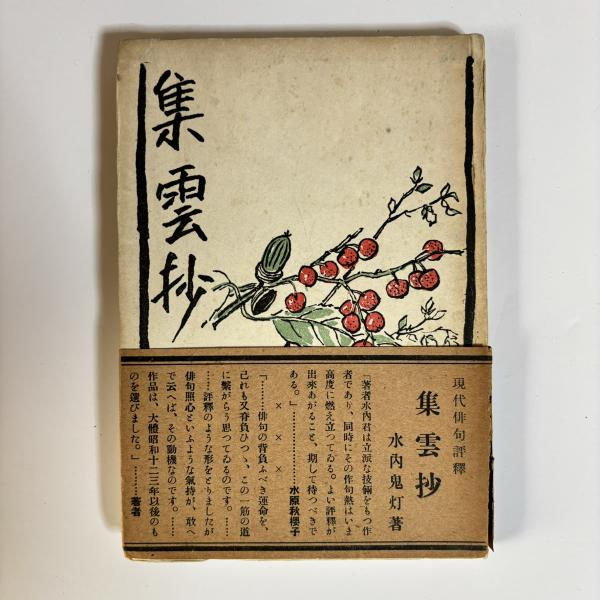 集雲抄
現代俳句評釋
集雲抄
水內鬼灯著
「著者水內君は立派な技倆をもつ作
者であり、同時にその作句熱はいま
高度に燃え立つてゐる。よい評釋が
出來あがること、期して待つべきで
ある。」………水原秋櫻子
× × ×
「………俳句の背負ふべき運命を、
己れも又脊負ひつゝ、この一筋の道
に繫がらう思つてゐるのです。……
……評釋のような形をとりましたが
俳句照心といふような氣持が、敢へ
で云へば、その動機なのです。……
作品は、大體昭和十二三年以後のも
のを選びました。」………著者